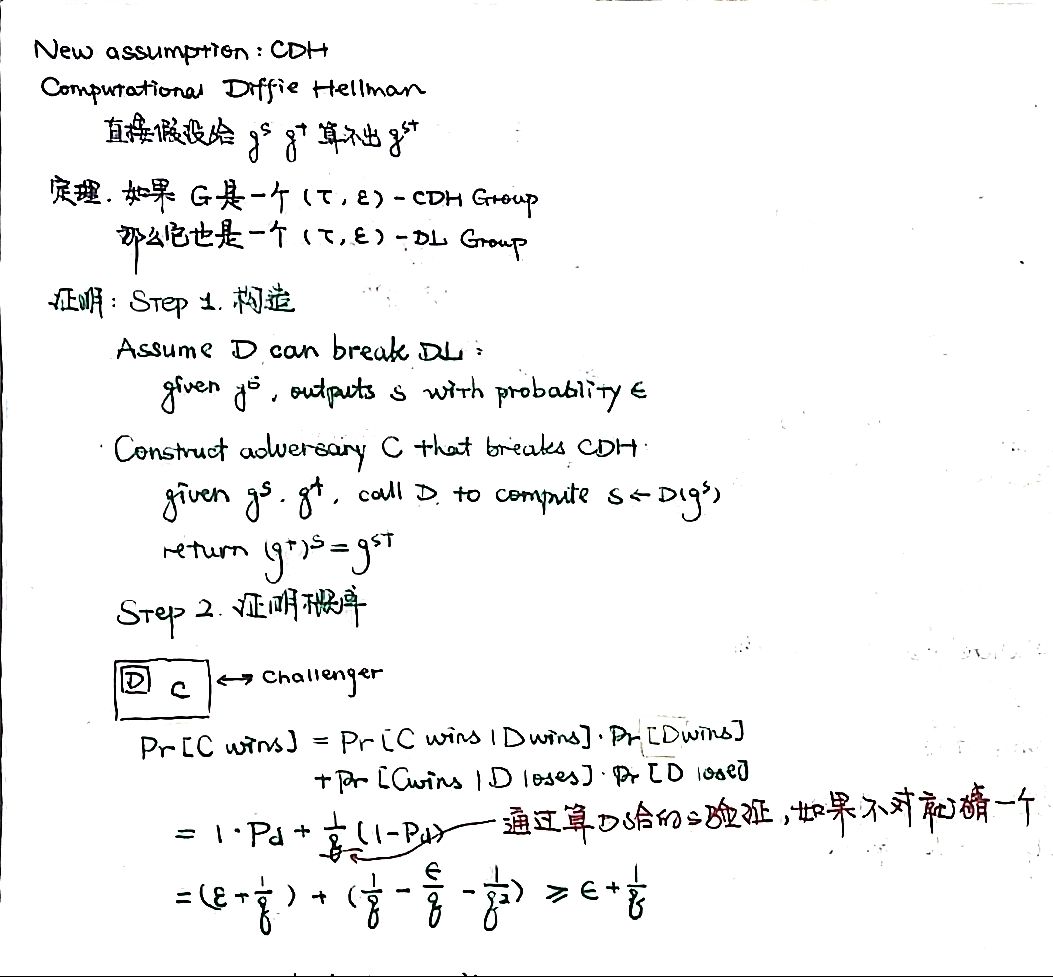 New assumption: CDH
Computational Diffie Hellman
直接假设给 g^s g^t 算不出 g^st
定理. 如果 G是一个 (τ, ε) - CDH Group
那么它也是一个 (τ, ε) - DL Group
证明: Step 1. 构造
Assume D can break DL:
given g^s, outputs s with probability ϵ
Construct adversary C that breaks CDH
given g^s, g^t, call D to compute s ← D(g^s)
return (g^t)^s = g^st
Step 2. 证明概率
D C ↔ Challenger
Pr[C wins] = Pr[C wins | D wins] · Pr[D wins]
+ Pr[C wins | D loses] · Pr[D lose]
= 1 · Pd + 1/q (1-Pd) 通过算D给的s验证,如果不对就猜一个
= (ε + 1/q) + (1/q - ϵ/q - 1/q²) ⩾ ϵ + 1/q